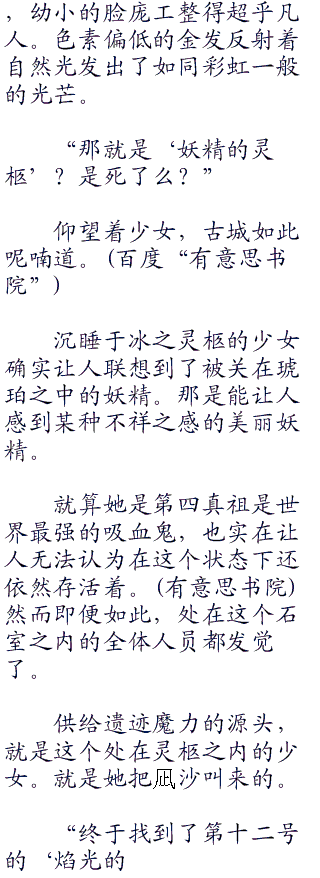 ，幼小的脸庞工整得超乎凡
人。色素偏低的金发反射着
自然光发出了如同彩虹一般
的光芒。
“那就是‘妖精的灵
柩’？是死了么？”
仰望着少女，古城如此
呢喃道。(百度“有意思书
院”)
沉睡于冰之灵柩的少女
确实让人联想到了被关在琥
珀之中的妖精。那是能让人
感到某种不祥之感的美丽妖
精。
就算她是第四真祖是世
界最强的吸血鬼，也实在让
人无法认为在这个状态下还
依然存活着。(有意思书院)
然而即便如此，处在这个石
室之内的全体人员都发觉
了。
供给遗迹魔力的源头，
就是这个处在灵柩之内的少
女。就是她把凪沙叫来的。
“终于找到了第十二号
的‘焰光的